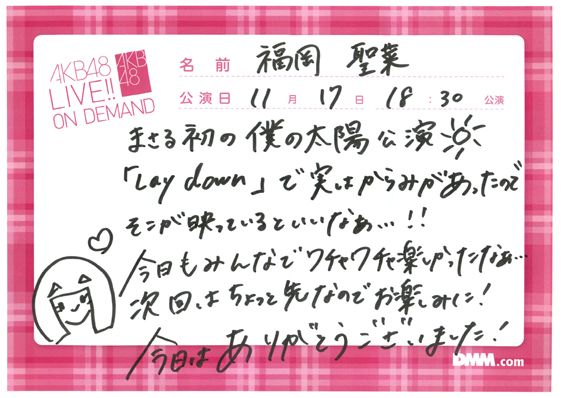 AKB48
LIVE!!
ON DEMAND
AKB
48
名前 福岡 聖菜
公演日 11月17日 18:30 公演
まさる初の僕の太陽公演
「Lay down」で実はからみがあったので
そこが映っているといいなぁ…!!
今日もみんなでワチャワチャ楽しかったなぁ…
次回はちょっと先なのでお楽しみに!
今日はありがとうございました!
DMM.com